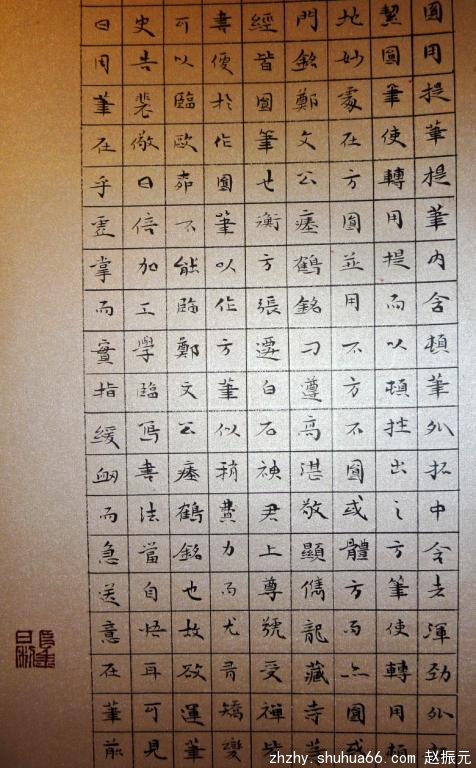 圓用提筆提筆內含頓筆外拓中含者渾勁外
圓筆使轉用提而以頓挫出之方筆使轉用頓
地妙處在方圓並用不方不圓或體方而亦圓或
門銘鄭文公瘞鶴銘刁遵高湛敬顯儁龍藏寺等
經皆圓筆也衡方張遷白石神君上尊號受禪皆
書便於作圓筆以作方筆似稍費力而尤有矯變
可以臨歐不能臨鄭文公瘞鶴銘也故欲運筆
史告裴儆曰倍加工學臨寫書法當自悟耳可見
曰用筆在乎虛掌而實指緩衂而急送意在筆前
zhzhy.shuhua66.com 赵振元